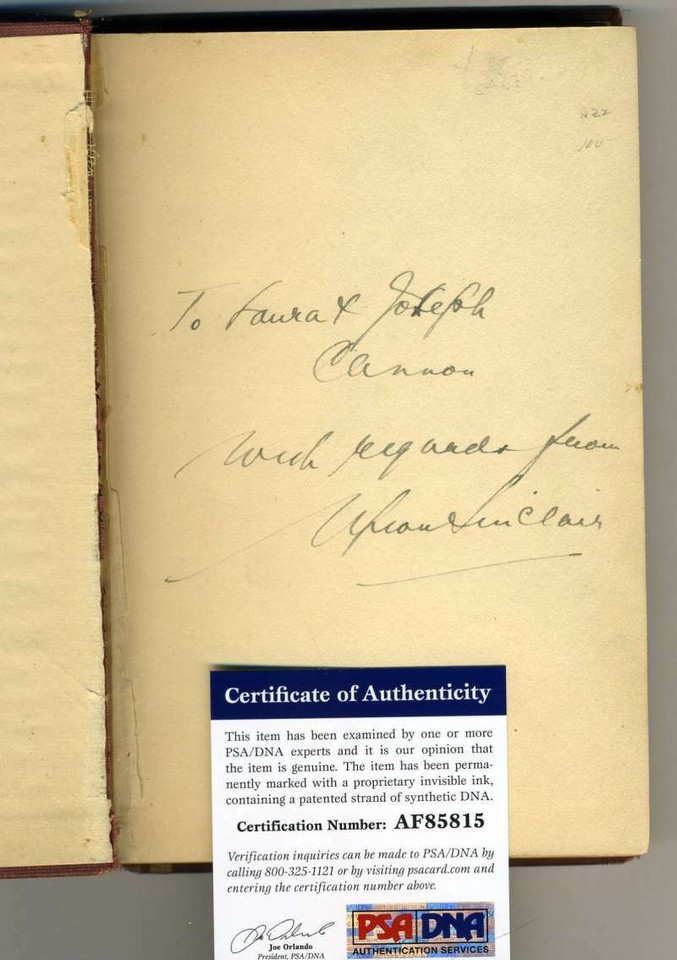 To Laura & Joseph
Cannon
with regards from
Upton Sinclair
Certificate of Authenticity
This item has been examined by one or more
PSA/DNA experts and it is our opinion that
the item is genuine. The item has been perma-
nently marked with a proprietary invisible ink,
containing a patented strand of synthetic DNA.
Certification Number: AF85815
Verification inquiries can be made to PSA/DNA by
calling 800-325-1121 or by visiting psacard.com and
entering the certification number above.
Joe Orlando
President, PSA/DNA
PSA DNA
AUTHENTICATION SERVICES